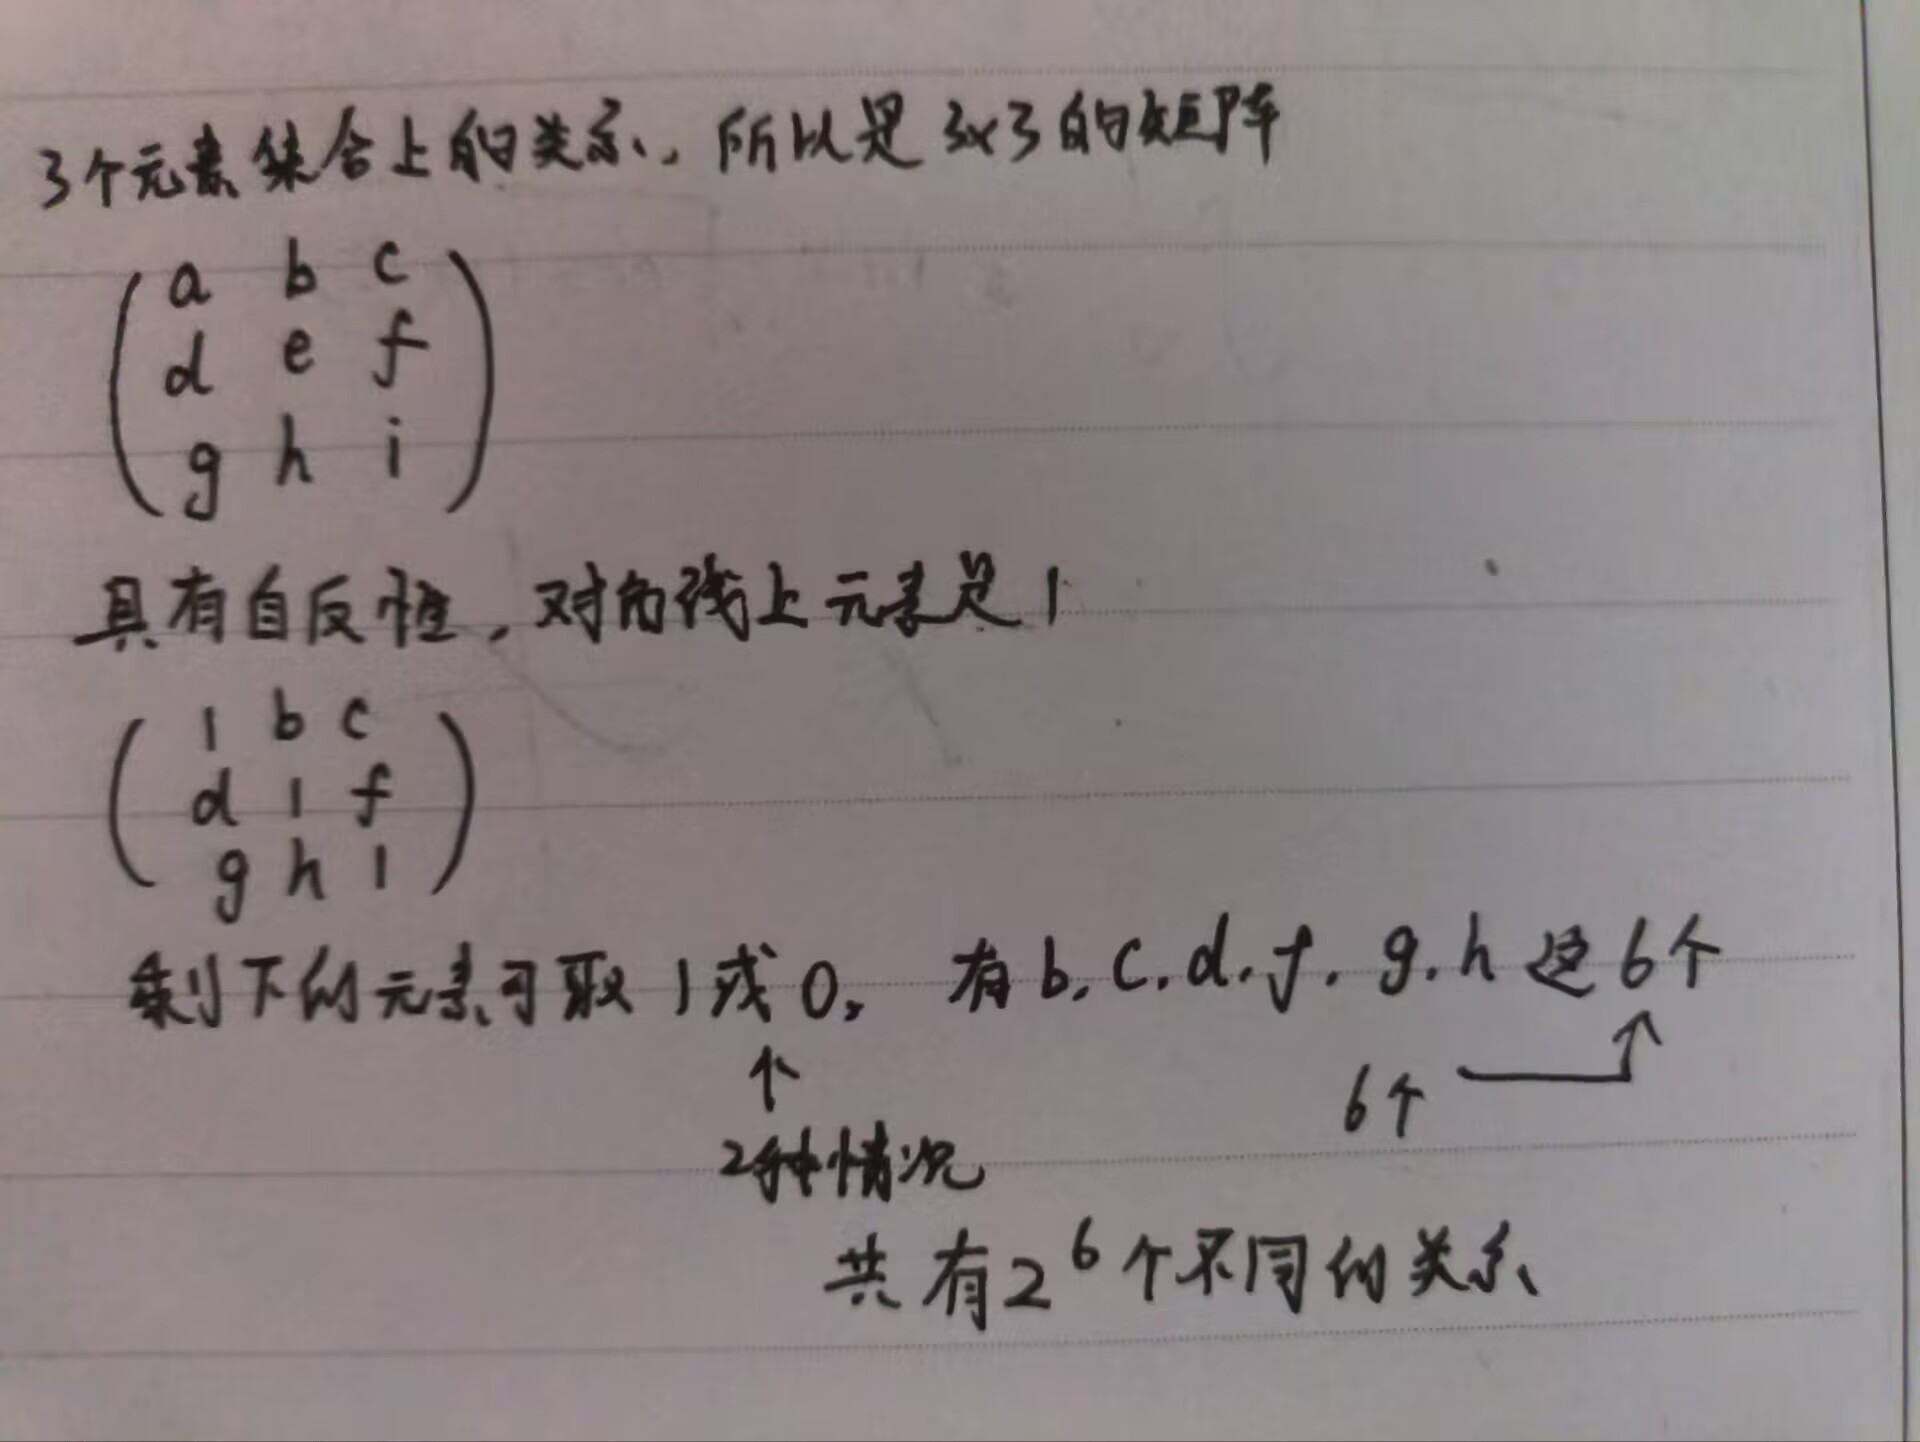 3个元素集合上的关系,所以是3x3的矩阵
a b c
d e f
g h i
具有自反性,对角线上元素是1
1 b c
d 1 f
g h 1
剩下的元素可取1或0,有b.c.d.f.g.h这6个
↑
6个
2种情况
共有2⁶个不同的关系